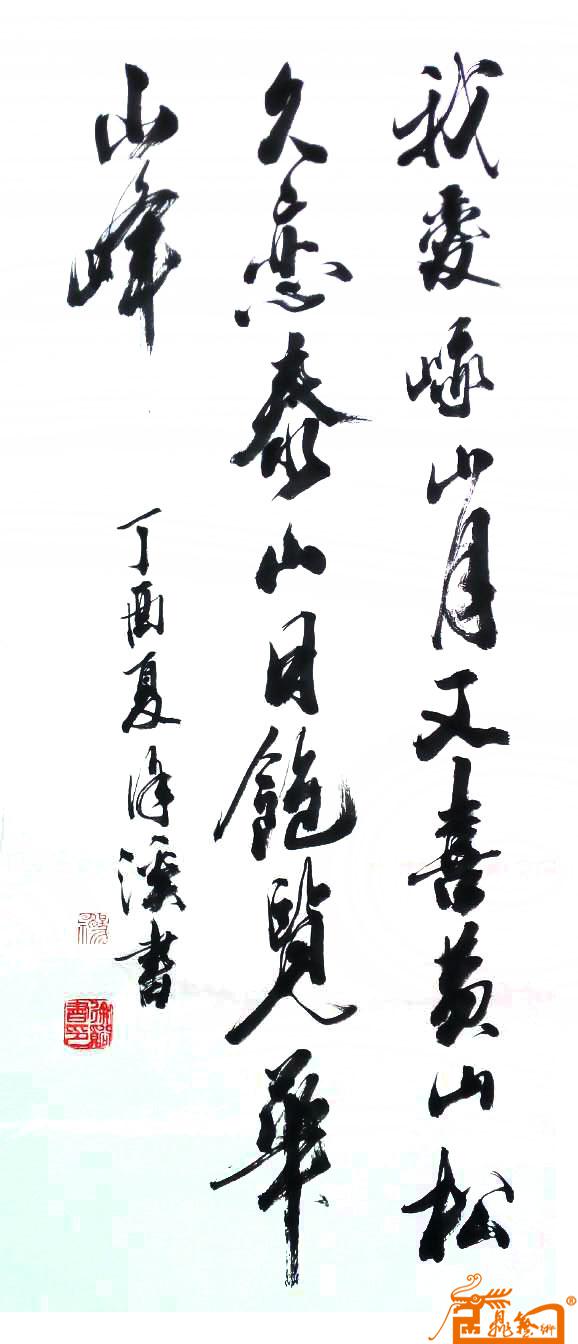 我爱峨山月又喜黄山松
久恋泰山日饱览华
山峰
丁酉夏徐溪书